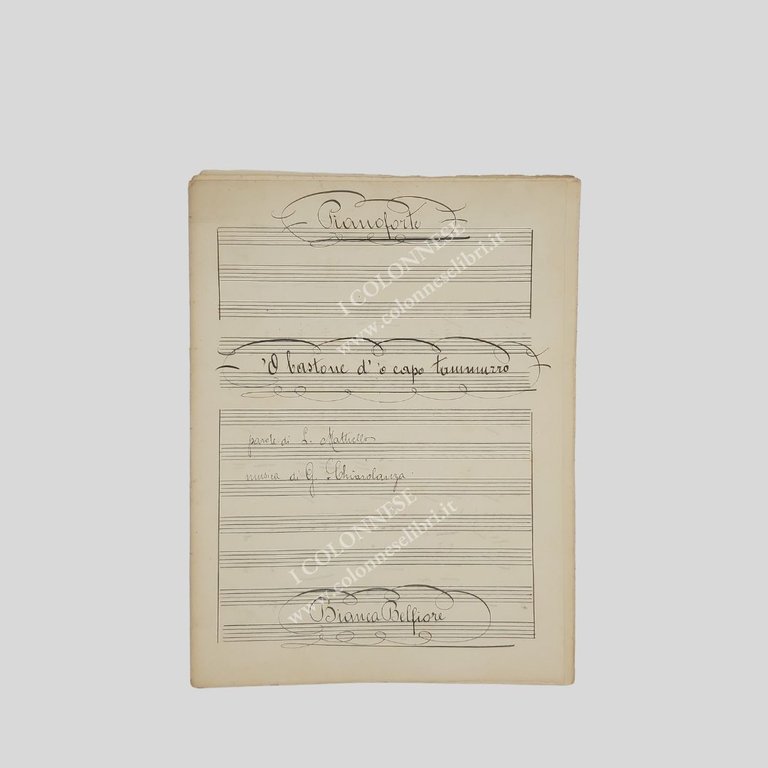 Pianoforte
I COLONNESE
www.colonneselibri.it
'O bastone d' 'o capo tammurro
parole di L. Mattiello
musica di G. Chiarolanza.
I COLONNESE
www.colonneselibri.it
Bianca Belfiore